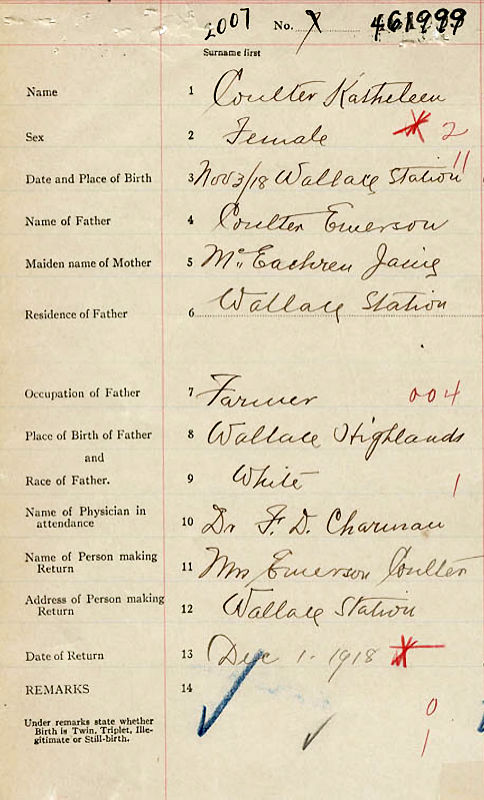 2007 No. X 461999
Surname first
Name 1 Coulter Katheleen
Sex 2 Female 2
Date and Place of Birth 3 Nov 3/18 Wallace Station 11
Name of Father 4 Coulter Emerson
Maiden name of Mother 5 McEachren
Residence of Father 6 Wallace Station
Occupation of Father 7 Farmer 004
Place of Birth of Father 8 Wallace Highlands
and
Race of Father. 9 White 1
Name of Physician in
attendance 10 Dr F. D. Charman
Name of Person making
Return 11 Mrs Emerson Coulter
Address of Person making
Return 12 Wallace Station
Date of Return 13 Dec 1. 1918
REMARKS 14
Under remarks state whether
Birth is Twin, Triplet, Ille-
gitimate or Still-birth.
0
1